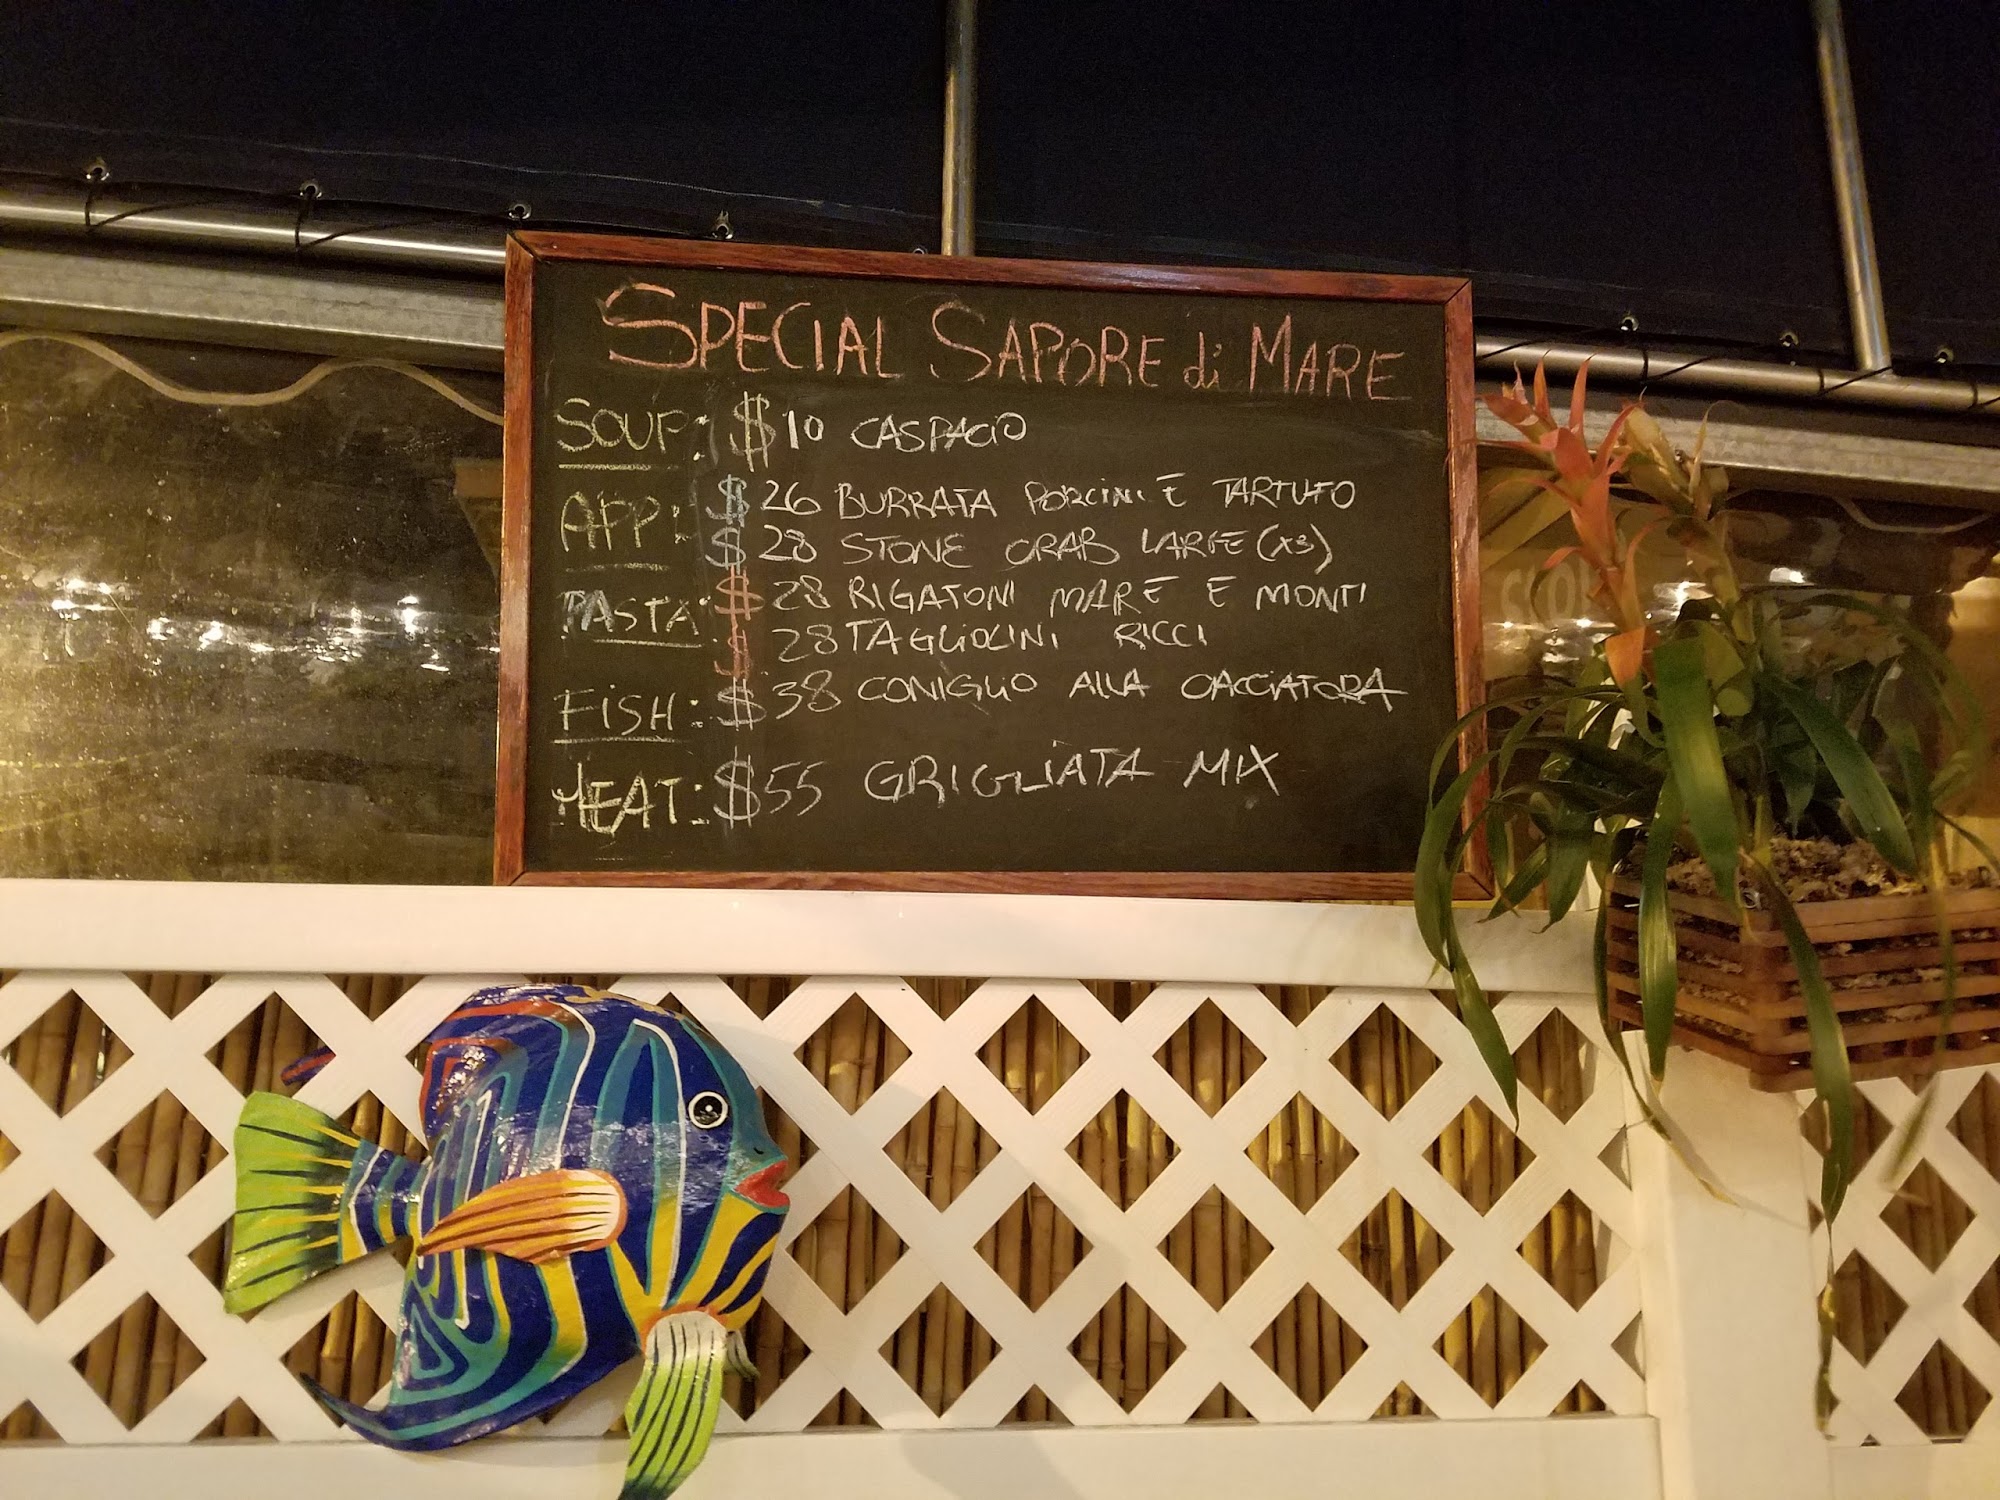 SPECIAL SAPORE di MARE
SOUP: $10 CASPACIO
APP: $26 BURRATA PORCINI E TARTUFO
$28 STONE CRAB LARGE (X3)
PASTA: $28 RIGATONI MARE E MONTI
$28 TAGLIOLINI RICCI
FISH: $38 CONIGLIO ALLA CACCIATORA
MEAT: $55 GRIGLIATA MIX